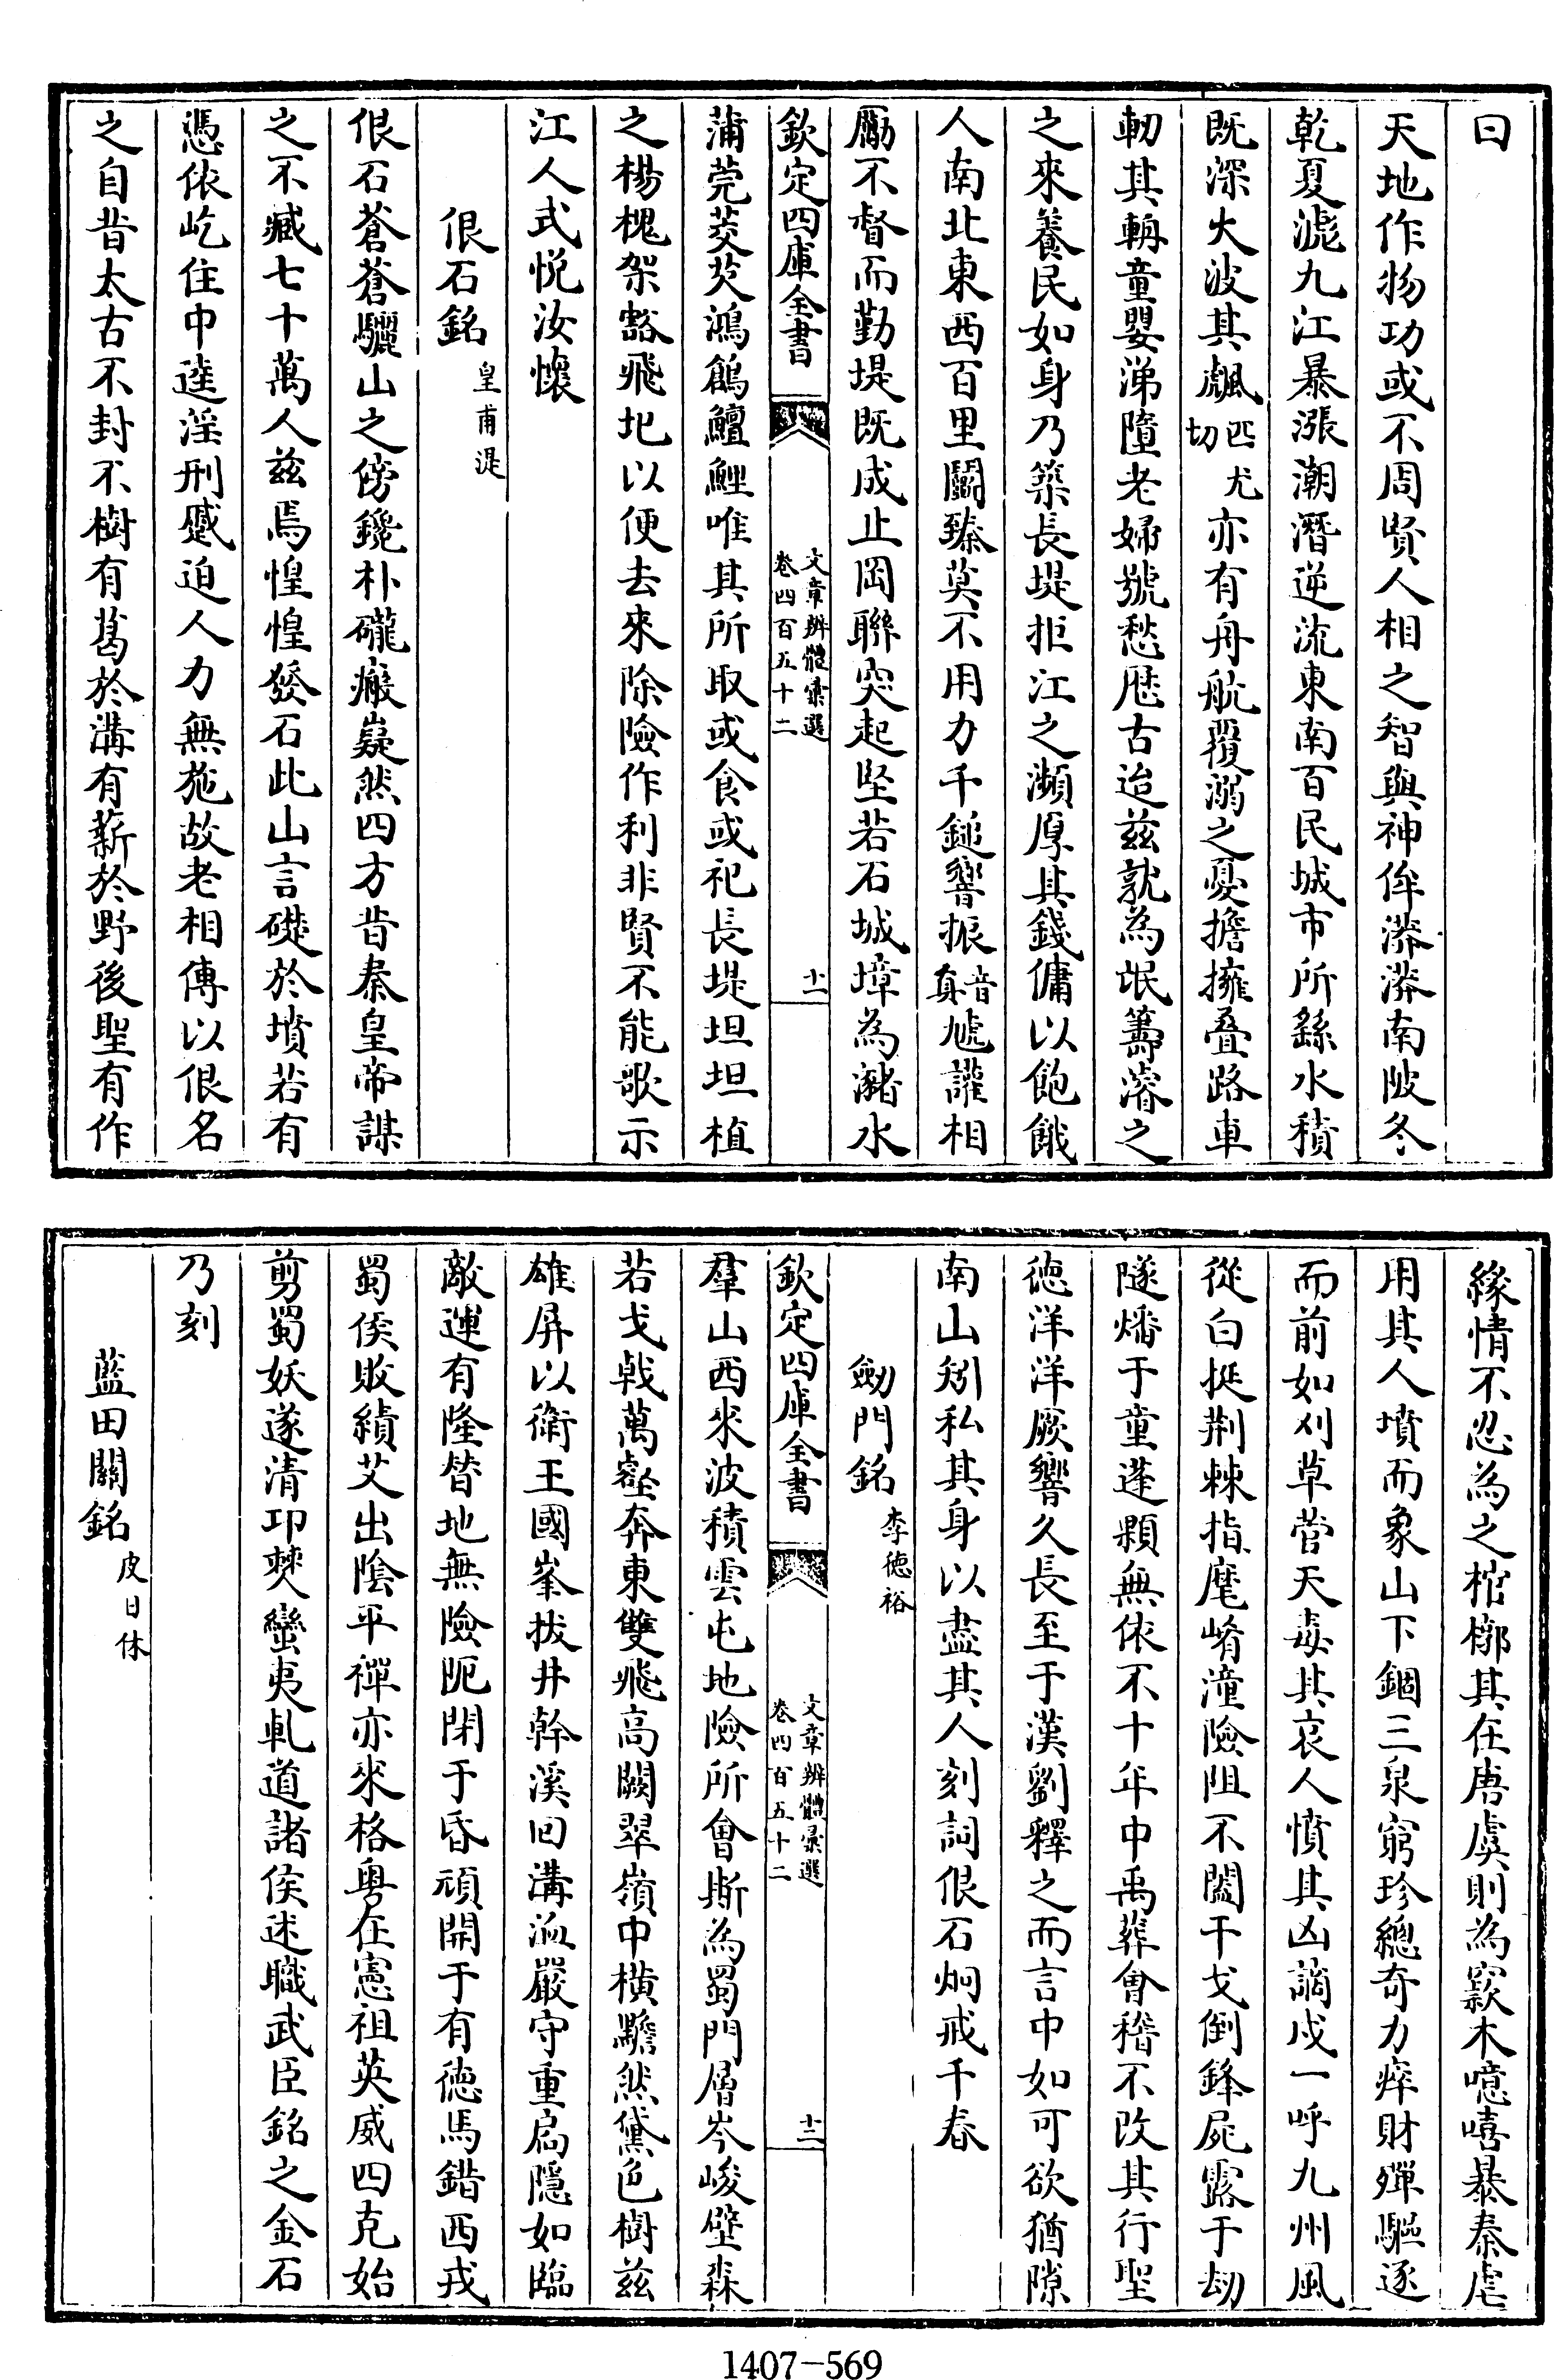 曰
天地作物功或不周賢人相之智與神侔漭漭南陂冬
乾夏滮九江暴漲潮潛逆流東南百民城市所繇水積
既深大波其飊匹尤切亦有舟航覆溺之憂擔擁疊路車
軔其輈童嬰涕隨老婦號愁歴古迨兹孰為氓籌濬之
之來養民如身乃築長堤拒江之瀕厚其錢傭以飽餓
人南北東西百里闢臻莫不用力千鎚響振音真尯讙相
勵不督而勤堤既成止岡聯突起堅若石城墇為瀦水
欽定四庫全書
文章辨體彙選
卷四百五十二
十一
蒲莞茭芡鴻鶬鱣鯉唯其所取或食或祀長堤坦坦植
之楊槐架豁飛圯以便去來除險作利非賢不能歌示
江人式悅汝懷
佷石銘皇甫湜
佷石蒼蒼驪山之傍鑱朴礲瘢嶷然四方昔秦皇帝謀
之不臧七十萬人兹焉惶惶發石此山言礎於墳若有
憑依屹住中逵淫刑蹙迫人力無施故老相傳以佷名
之自昔太古不封不樹有葛於溝有薪於野後聖有作
緣情不忍為之棺槨其在唐虞則為窾木噫嘻暴秦虐
用其人墳而象山下錮三泉窮珍總奇力瘁財殫驅逐
而前如刈草菅天毒其哀人憤其凶謫戍一呼九州風
從白挺荆棘指麾崤潼險阻不闔干戈倒鋒屍露于劫
隧燔于童蓬顆無依不十年中禹葬會稽不改其行聖
徳洋洋厥響久長至于漢劉釋之而言中如可欲猶隙
南山矧私其身以盡其人刻詞佷石炯戒千春
劒門銘李徳裕
欽定四庫全書
文章辨體彙選
卷四百五十二
十二
羣山西來波積雲屯地險所會斯為蜀門層岑峻壁森
若戈㦸萬壑奔東雙飛高闕翠嶺中横黯然黛色樹兹
雄屏以衛王國峯拔井幹溪回溝洫嚴守重扃隱如臨
敵運有隆替地無險阨閉于昏頑開于有徳馬錯西戎
蜀侯敗績艾出陰平禪亦來格粤在憲祖英威四克始
剪蜀妖遂清邛僰蠻夷軋道諸侯述職武臣銘之金石
乃刻
藍田關銘皮日休
1407-569